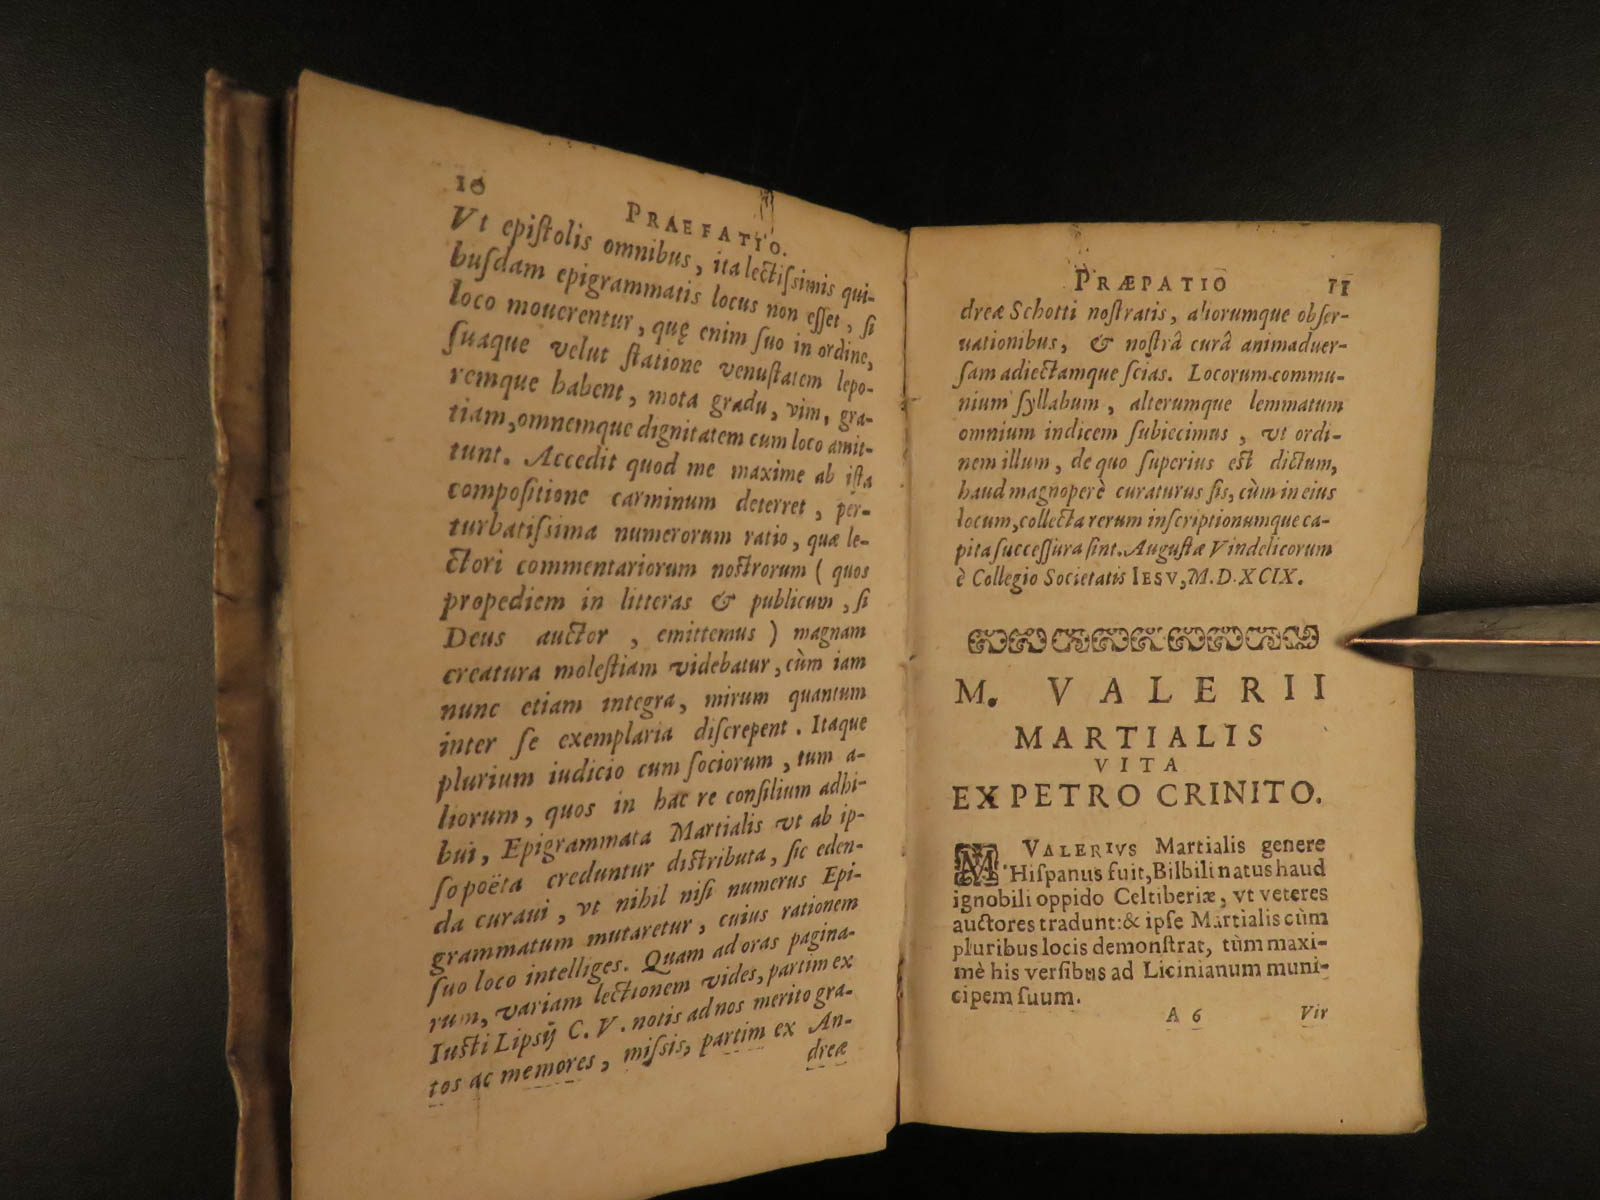 10
PRAEFATIO.
Vt epiſtolis omnibus, ita lectiſsimis qui-
buſdam epigrammatis locus non eſſet, ſi
loco mouerentur, quę enim ſuo in ordine,
ſuaque velut ſtatione venuſtatem lepo-
remque habent, mota gradu, vim, gra-
tiam, omnemque dignitatem cum loco amit-
tunt. Accedit quod me maxime ab iſta
compoſitione carminum deterret, per-
turbatiſsima numerorum ratio, quæ le-
ctori commentariorum noſtrorum ( quos
propediem in litteras & publicum, ſi
Deus auctor, emittemus ) magnam
creatura moleſtiam videbatur, cùm iam
nunc etiam integra, mirum quantum
inter ſe exemplaria diſcrepent. Itaque
plurium iudicio cum ſociorum, tum a-
liorum, quos in hac re conſilium adhi-
bui, Epigrammata Martialis vt ab ip-
ſo poëta creduntur diſtributa, ſic eden-
da curaui, vt nihil niſi numerus Epi-
grammatum mutaretur, cuius rationem
ſuo loco intelliges. Quam ad oras pagina-
rum, variam lectionem vides, partim ex
Iuſti Lipſij C. V. notis ad nos merito gra-
tos ac memores, miſsis, partim ex An-
dreæ
PRÆPATIO
11
dreæ Schotti noſtratis, aliorumque obſer-
uationibus, & noſtrâ curâ animaduer-
ſam adiectamque ſcias. Locorum commu-
nium ſyllabum, alterumque lemmatum
omnium indicem ſubiecimus, vt ordi-
nem illum, de quo ſuperius eſt dictum,
haud magnoperè curaturus ſis, cùm in eius
locum, collecta rerum inſcriptionumque ca-
pita ſucceſſura ſint. Auguſtæ Vindelicorum
è Collegio Societatis IESV, M.D.XCIX.
M. VALERII
MARTIALIS
VITA
EX PETRO CRINITO.
M VALERIVS Martialis genere
Hiſpanus fuit, Bilbili natus haud
ignobili oppido Celtiberiæ, vt veteres
auctores tradunt: & ipſe Martialis cùm
pluribus locis demonſtrat, tùm maxi-
mè his verſibus ad Licinianum muni-
cipem ſuum.
A 6
Vir